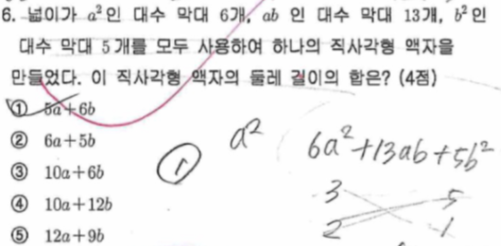 6. 넓이가 a²인 대수 막대 6개, ab 인 대수 막대 13개, b²인
대수 막대 5개를 모두 사용하여 하나의 직사각형 액자을
만들었다. 이 직사각형 액자의 둘레 길이의 합은? (4점)
① 5a+6b
② 6a+5b
③ 10a+6b
④ 10a+12b
⑤ 12a+9b
①
a²
6a²+13ab+5b²
3 5
2 1